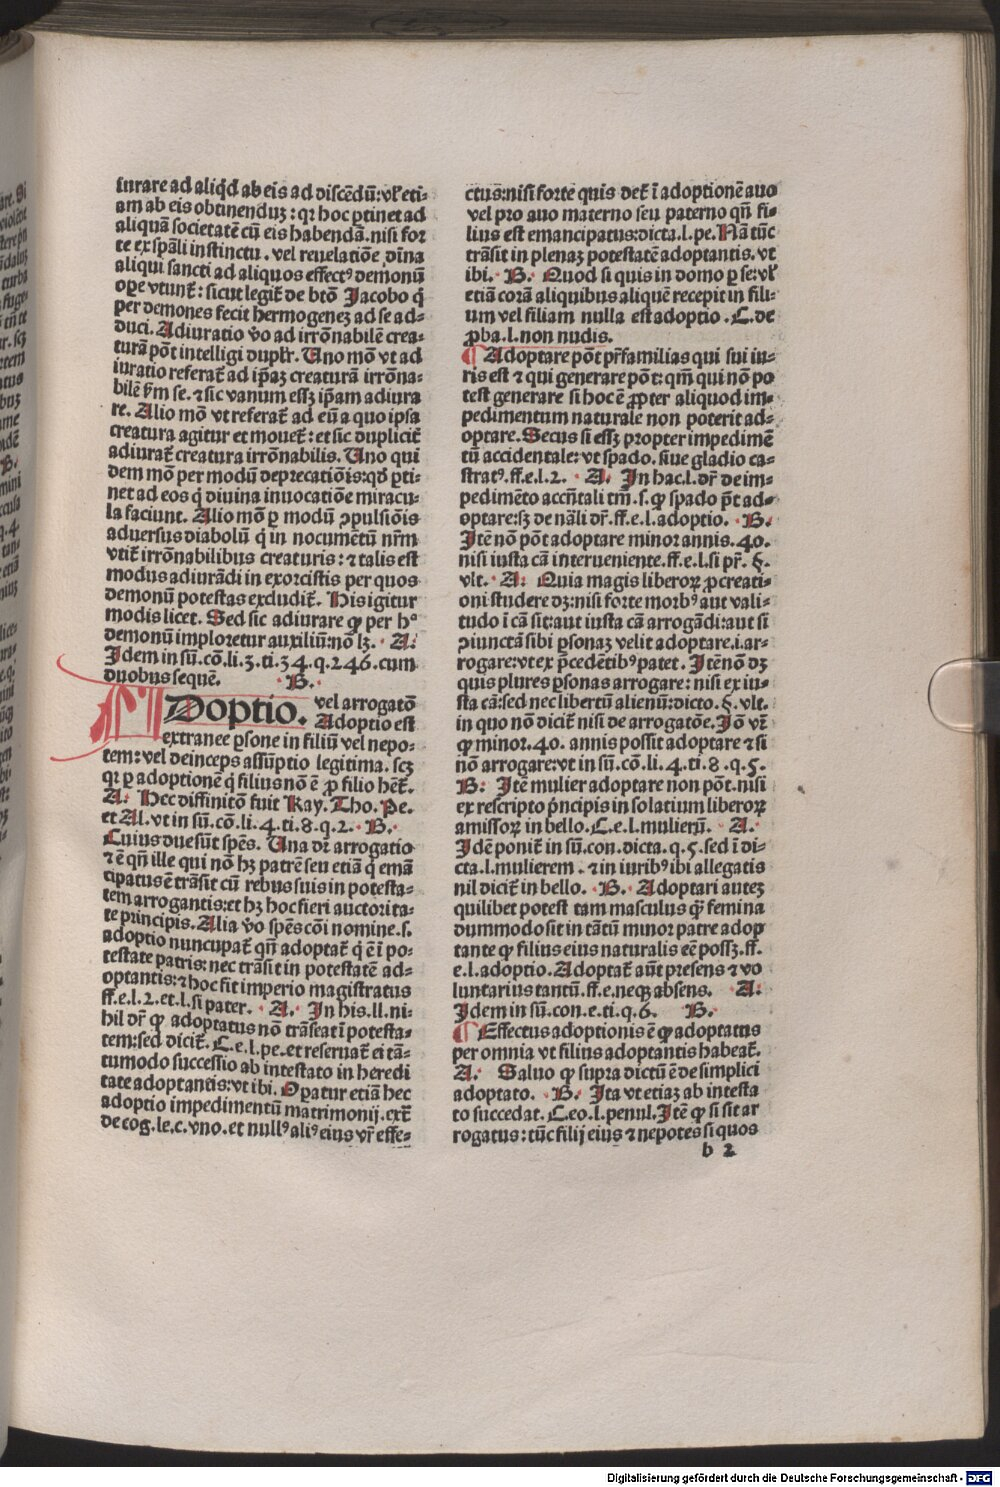 iurare ad aliqd̄ ab eis ad discēdū: vl̓ eti-
am ab eis obtinenduȝ: qꝛ hoc ꝑtinet ad
aliquā societatē cū eis habendā. nisi for
te ex spāli instinctu. vel reuelatiōe diuīa
aliqui sancti ad aliquos effectꝰ demonū
oꝑe vtunt᷑: sicut legit᷑ de bt̄o Jacobo q̇
per demones fecit hermogeneȝ ad se ad-
duci. Adiuratio v̄o ad irrōnabilē crea-
turā pōt intelligi duplr̄. Uno mō vt ad
iuratio referat᷑ ad ip̄aȝ creaturā irrōna-
bilē ẜm se. ⁊ sic vanum essȝ ip̄am adiura
re. Alio mō vt referat᷑ ad eū a quo ipsa
creatura agitur et mouet᷑: et sic duplicit᷑
adiurat᷑ creatura irrōnabilis. Uno qui
dem mō per modū deprecatiōis: qd̄ ꝑti-
net ad eos q̇ diuina inuocatiōe miracu-
la faciunt. Alio mō ꝑ modū ꝯpulsiōis
aduersus diabolū q̇ in nocumētū nr̄m
vtit᷑ irrōnabilibus creaturis: ⁊ talis est
modus adiurādi in exorcistis per quos
demonū potestas excludit᷑. His igitur
modis licet. Sed sic adiurare ꝙ per hᵒ
demonū imploretur auxiliū: nō lȝ. · A:
Idem in sū. cō. li. 3. ti. 34. q. 246. cum
duobus sequē. · B. ·
Adoptio. vel arrogatō
Adoptio est
extranee ꝑsone in filiū vel nepo-
tem: vel deinceps assūptio legitima. scȝ
qꝛ ꝑ adoptionē q̇ filius nō ē ꝓ filio hēt᷑.
A. Hec diffinitō fuit Ray. Tho. Pe.
et Al. vt in sū. cō. li. 4. ti. 8. q. 2. · B. ·
Cuius due sūt spēs. Una dr̄ arrogatio
⁊ ē qn̄ ille qui nō hȝ patrē seu etiā q̇ emā
cipatus ē trāsit cū rebus suis in potesta-
tem arrogantis: et hȝ hoc fieri auctorita-
te principis. Alia v̄o spēs cōi nomine. s.
adoptio nuncupat᷑ qn̄ adoptat᷑ q̇ ē ī po-
testate patris: nec trāsit in potestatē ad-
optantis: ⁊ hoc fit imperio magistratus
ff. e. l. 2. et. l. si pater. · A. In his. ll. ni-
hil dr̄ ꝙ adoptatus nō trāseat ī potesta-
tem: sed dicit᷑. C. e. l. pe. et reseruat᷑ ei tā-
tumodo successio ab intestato in heredi
tate adoptantis: vt ibi. Oꝑatur etiā hec
adoptio impedimentū matrimonij. extr̄
de cog. le. c. vno. et nullꝰ aliꝰ eius vr̄ effe-
ctus: nisi forte quis det᷑ ī adoptionē auo
vel pro auo materno seu paterno qn̄ fi-
lius est emancipatus: dicta. l. pe. Nā tūc
trāsit in plenaȝ potestatē adoptantis. vt
ibi. · B. Quod si quis in domo ꝑ se: vl̓
etiā corā aliquibus aliquē recepit in fili-
um vel filiam nulla est adoptio. C. de
ꝓba. l. non nudis.
¶ Adoptare pōt pr̄familias qui sui iu-
ris est ⁊ qui generare pōt: qm̄ qui nō po
test generare si hoc ē ꝓpter aliquod im-
pedimentum naturale non poterit ad-
optare. Secus si essȝ propter impedimē
tū accidentale: vt spado. siue gladio ca-
stratꝰ. ff. e. l. 2. · A. In hac. l. dr̄ de im-
pedimēto accn̄tali tm̄. s. ꝙ spado pōt ad-
optare: sȝ de nāli dr̄. ff. e. l. adoptio. · B.
Itē nō pōt adoptare minor annis. 40.
nisi iusta cā interueniente. ff. e. l. si pr̄. §.
vlt. · A: Quia magis liberoꝝ ꝓcreati-
oni studere dȝ: nisi forte morbꝰ aut vali-
tudo ī cā sit: aut iusta cā arrogādi: aut si
ꝯiunctā sibi ꝑsonaȝ velit adoptare. i. ar-
rogare: vt ex p̄cedētibꝰ patet. Itē nō dȝ
quis plures ꝑsonas arrogare: nisi ex iu-
sta cā: sed nec libertū alienū: dicto. §. vlt.
in quo nō dicit᷑ nisi de arrogatōe. Iō vr̄
ꝙ minor. 40. annis possit adoptare ⁊ si
nō arrogare: vt in sū. cō. li. 4. ti. 8. q. 5.
B: Itē mulier adoptare non pōt. nisi
ex rescripto p̄ncipis in solatium liberoꝝ
amissoꝝ in bello. C. e. l. mulierū. · A. ·
Idē ponit᷑ in sū. con. dicta. q. 5. sed ī di-
cta. l. mulierem. ⁊ in iuribꝰ ibi allegatis
nil dicit᷑ in bello. · B. Adoptari auteȝ
quilibet potest tam masculus qꝫ femina
dummodo sit in tātū minor patre adop
tante ꝙ filius eius naturalis eē possȝ. ff.
e. l. adoptio. Adoptat᷑ aūt presens ⁊ vo
luntarius tantū. ff. e. neqȝ absens. · A:
Idem in sū. con. e. ti. q. 6. B. ·
¶ Effectus adoptionis ē ꝙ adoptatus
per omnia vt filius adoptantis habeat᷑.
A. · Saluo ꝙ supra dictū ē de simplici
adoptato. · B. · Ita vt etiaȝ ab intesta
to succedat. C. eo. l. penul. Itē ꝙ si sit ar
rogatus: tūc filij eius ⁊ nepotes si quos
b 2
Digitalisierung gefördert durch die Deutsche Forschungsgemeinschaft - DFG